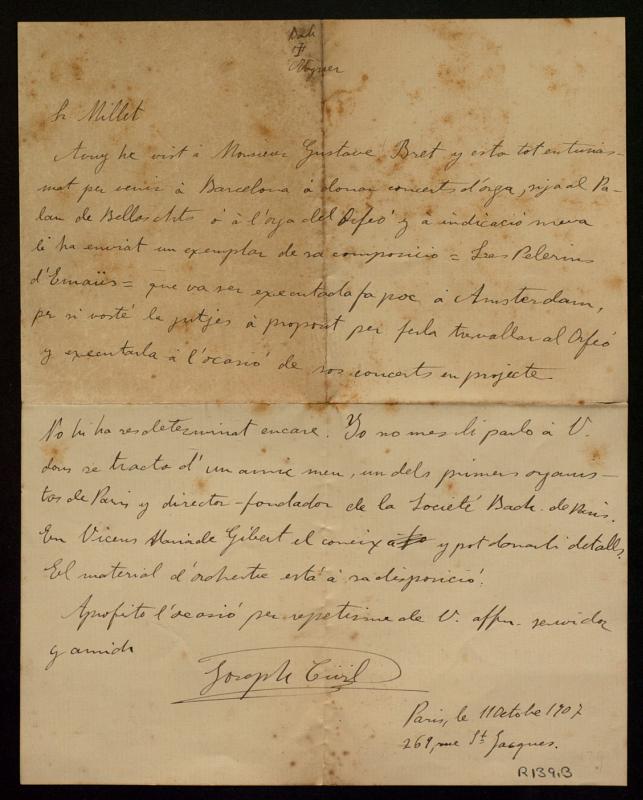 Bach
Wagner
Sr Millet
Avuy he vist á Monsieur Gustave Bret y esta tot entusias-
mat per venir á Barcelona á donar concerts d'orga, sija al Pa-
lau de Bellas Arts ó á l'orga del Orfeó y á indicació meva
li ha enviat un exemplar de sa composició = Les Pelerins
d'Emaüs = que va ser executada fa poc á Amsterdam,
per si vosté la jutjes á propósit per ferla travallar al Orfeó
y executarla á l'ocasió de sos concerts en projecte
No hi ha res determinat encare. Yo no mes li parlo á V.
doncs se tracta d'un amic meu, un dels primers organis-
tas de Paris y director-fondador de la Societé Bach de Paris.
En Vicens Maria de Gibert el coneix y pot donarli detalls.
El material d'orchestre está á sa disposició.
Aprofito l'ocasió per repetirme de V. affm. servidor
y amich
Joseph Civil
Paris, le 11 Octobre 1907
269, rue St Jacques.
R139.B